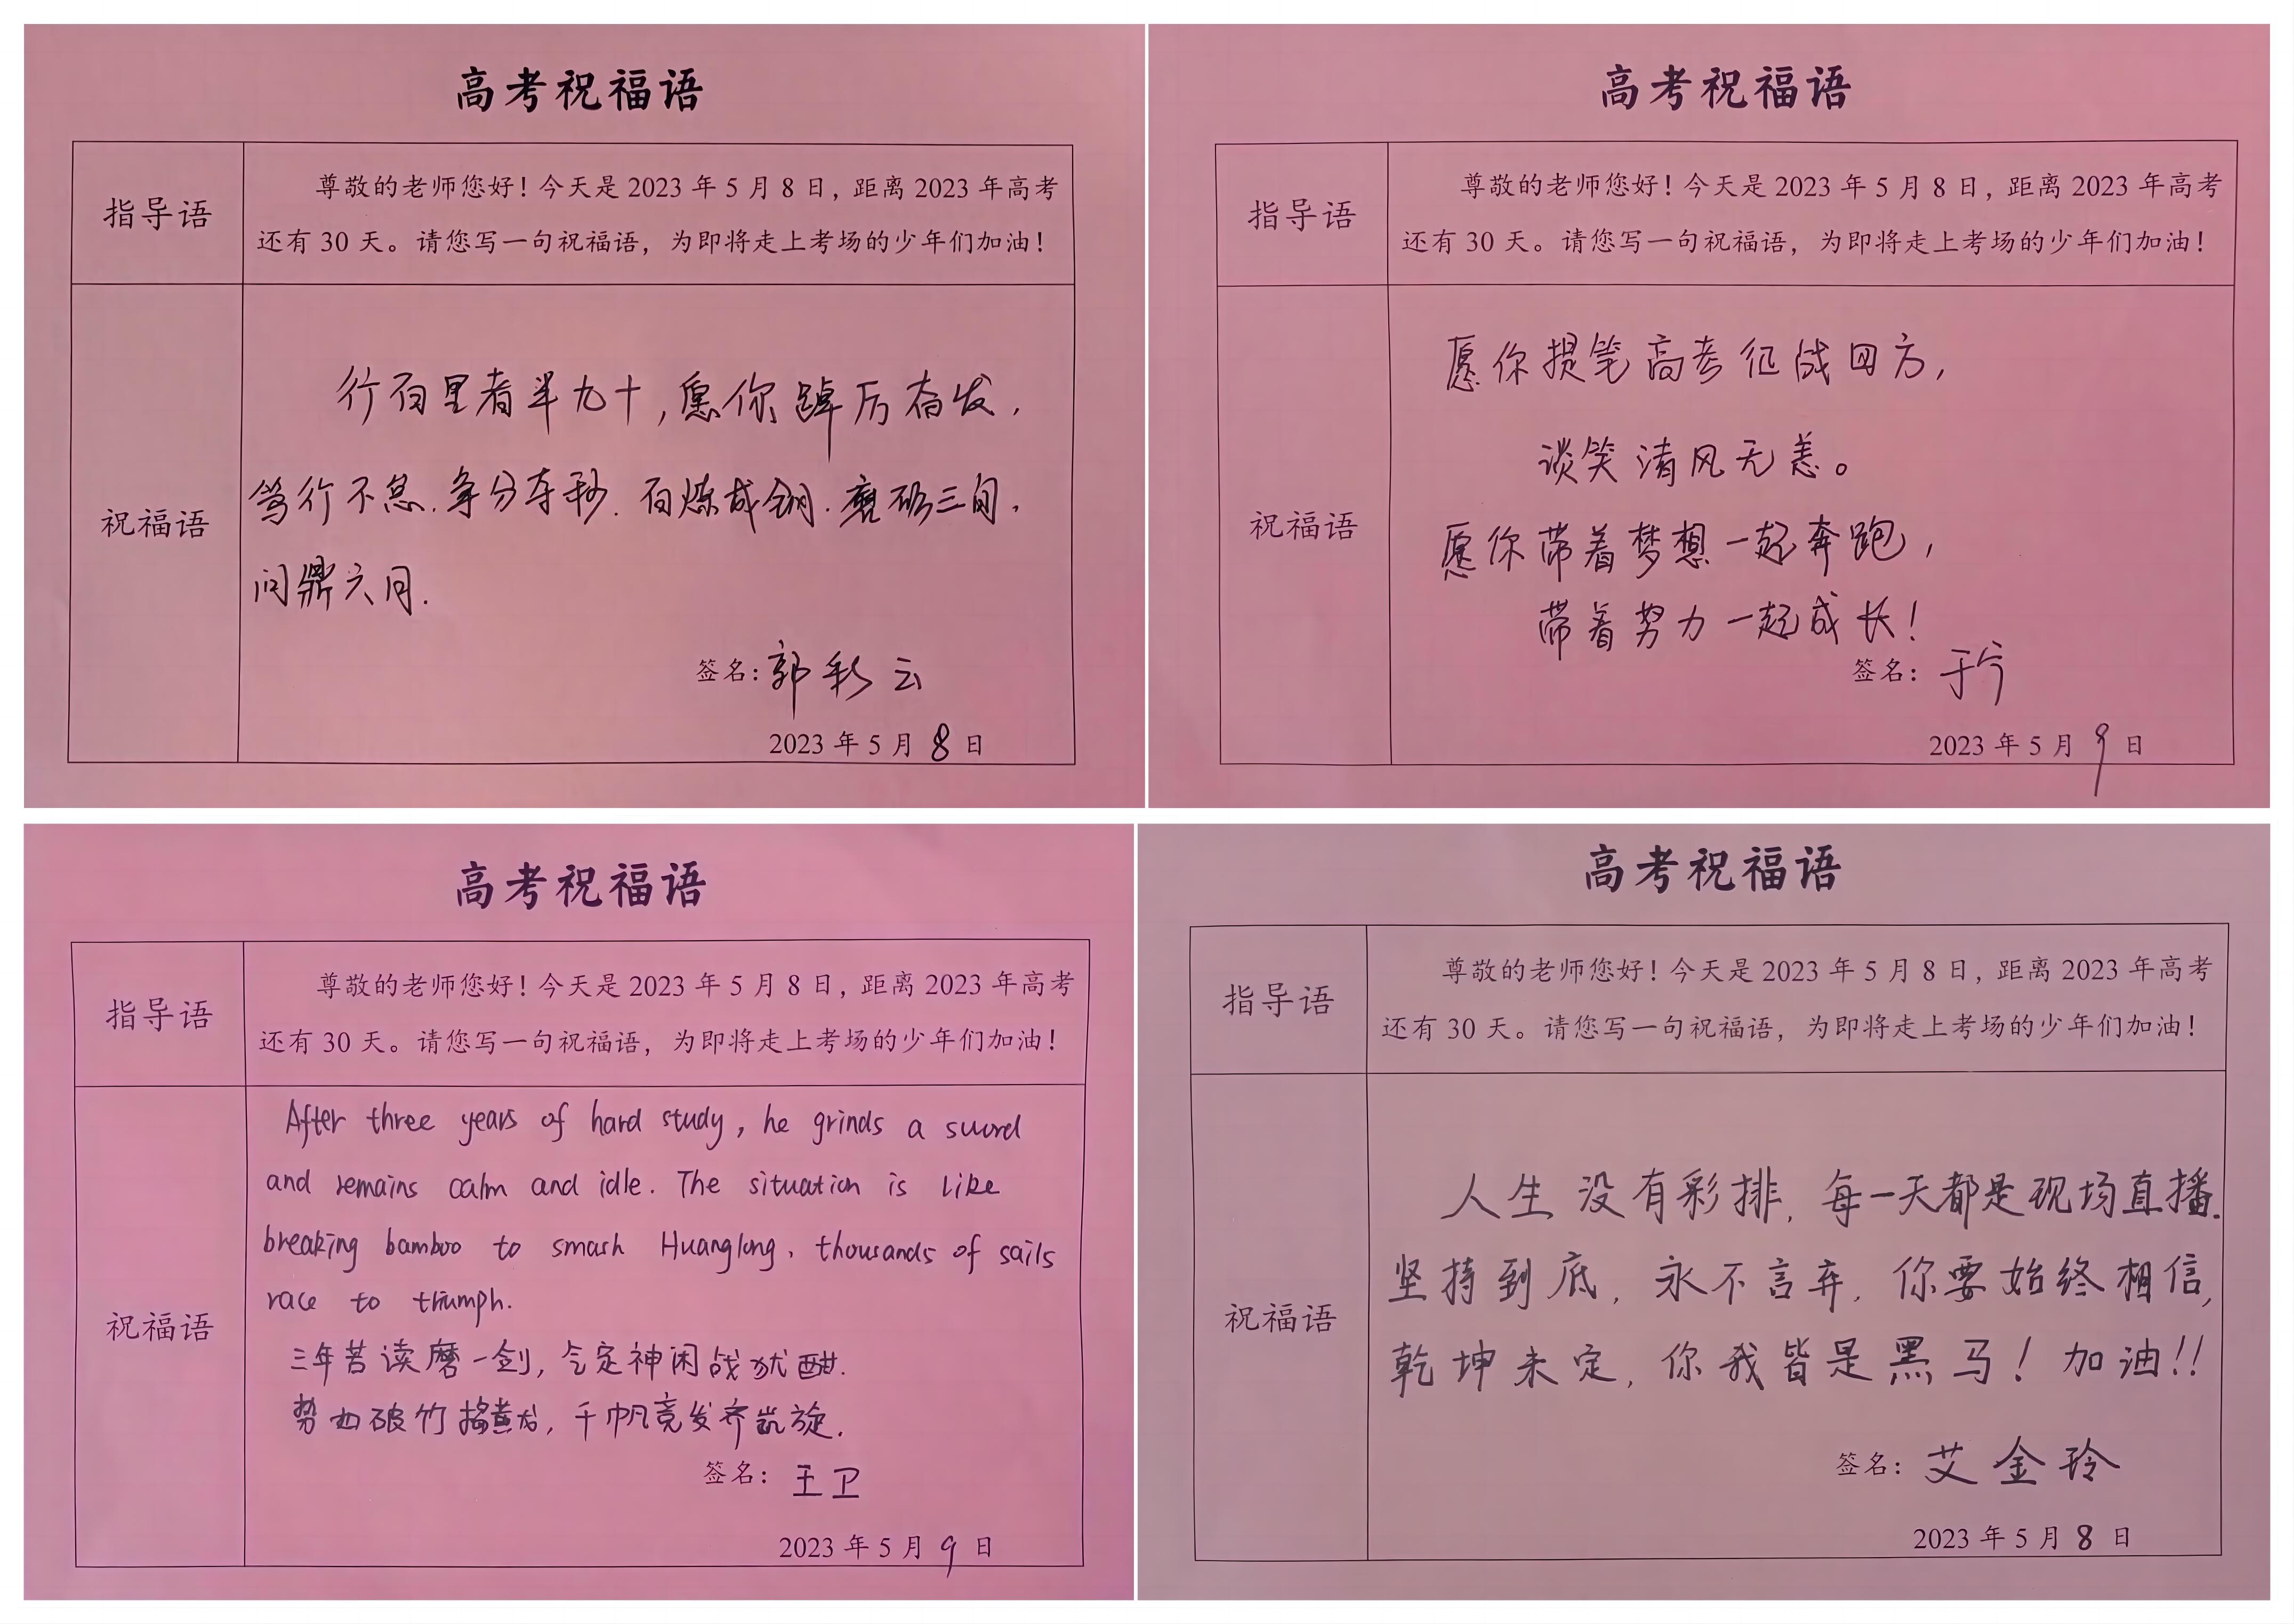 高考祝福语
指导语
尊敬的老师您好！今天是 2023 年 5 月 8 日，距离 2023 年高考
还有 30 天。请您写一句祝福语，为即将走上考场的少年们加油！
祝福语
行百里者半九十，愿你踔厉奋发，
笃行不怠.争分夺秒.百炼成钢.磨砺三旬，
问鼎六月.
签名：郭彩云
2023 年 5 月 8 日
高考祝福语
指导语
尊敬的老师您好！今天是 2023 年 5 月 8 日，距离 2023 年高考
还有 30 天。请您写一句祝福语，为即将走上考场的少年们加油！
祝福语
愿你提笔高考征战四方，
谈笑清风无恙。
愿你带着梦想一起奔跑，
带着努力一起成长！
签名：于
2023 年 5 月 9 日
高考祝福语
指导语
尊敬的老师您好！今天是 2023 年 5 月 8 日，距离 2023 年高考
还有 30 天。请您写一句祝福语，为即将走上考场的少年们加油！
祝福语
After three years of hard study, he grinds a sword
and remains calm and idle. The situation is like
breaking bamboo to smash Huanglong, thousands of sails
race to triumph.
三年苦读磨一剑，气定神闲战犹酣.
势如破竹捣黄龙，千帆竞发齐凯旋.
签名：王卫
2023 年 5 月 9 日
高考祝福语
指导语
尊敬的老师您好！今天是 2023 年 5 月 8 日，距离 2023 年高考
还有 30 天。请您写一句祝福语，为即将走上考场的少年们加油！
祝福语
人生没有彩排，每一天都是现场直播.
坚持到底，永不言弃，你要始终相信，
乾坤未定，你我皆是黑马！加油!!
签名：艾金玲
2023 年 5 月 8 日